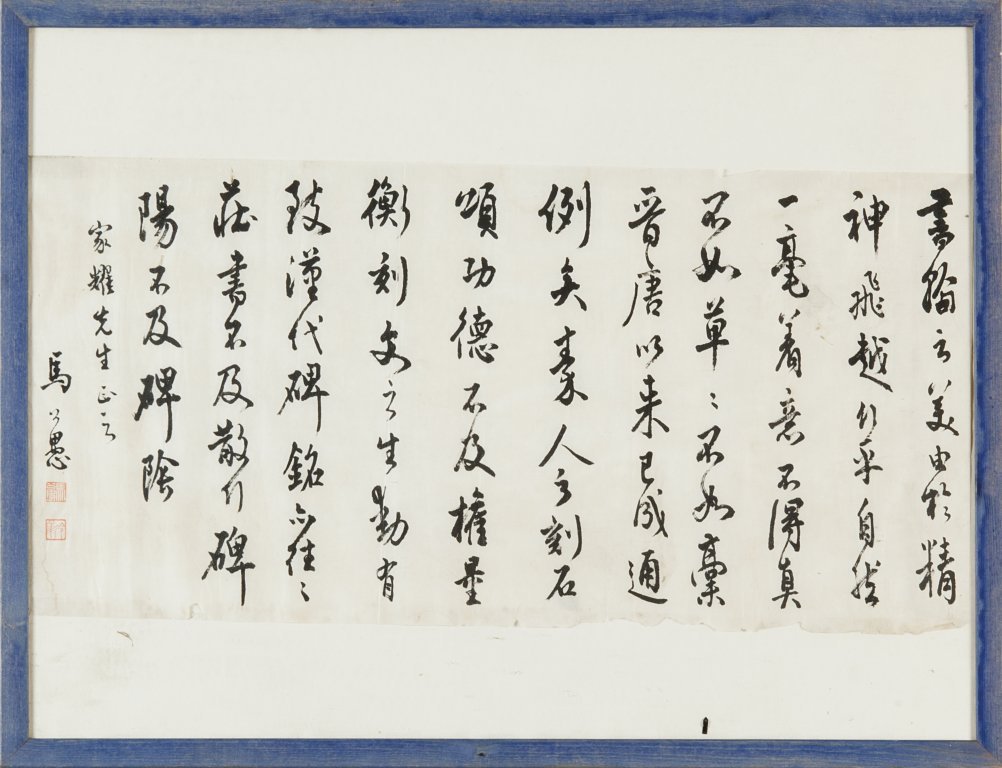 書翰之美由於精
神飛越行乎自然
一毫着意不得真
不如草〻不如稾
晉唐以來已成通
例矣秦人之刻石
頌功德不及權量
衡刻文之生動有
致漢代碑銘亦往〻
莊書不及散行碑
陽不及碑陰
家耀先生正之
馬公愚